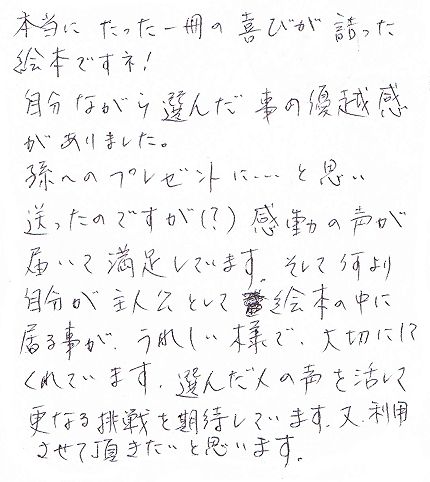 本当に たった一冊の喜びが詰った
絵本ですネ!
自分ながら選んだ事の優越感
がありました。
孫へのプレゼントに……と思い
送ったのですが(?)感動の声が
届いて満足しています。そして何より
自分が主人公として絵本の中に
居る事が、うれしい様で、大切にして
くれています。選んだ人の声を活して
更なる挑戦を期待しています。又、利用
させて頂きたいと思います。